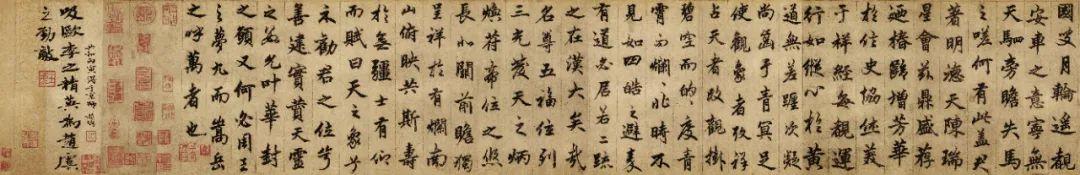 國叟月輪遙觀
安車之意寧無
天駟旁瞻失馬
之嗟何有此盖
著明德天陳瑞
星會茲鼎盛荐
廼椿齡增芳華
於信史協休美
于祥經每觀運
行如縱心於黃
道無差躔次疑
尚齒于青冥足
使觀象者攷祥
占天者攺觀掛
碧空而的的度青
霄而爛爛非時不
見如四皓之避秦
有道必居若二疏
之在漢大矣哉
名尊五福位列
三光發天之炳
煥苻帝位之熙
長北闕前瞻獨
呈祥於有爛南
山俯映共斯壽
於無疆士有仰
而賦曰天之象兮
示勸君之位兮
善建實賚天靈
之安允叶華封
之願又何必周王
之夢九而嵩岳
之呼萬者也
吸歐李之精英為趙
之勁敵